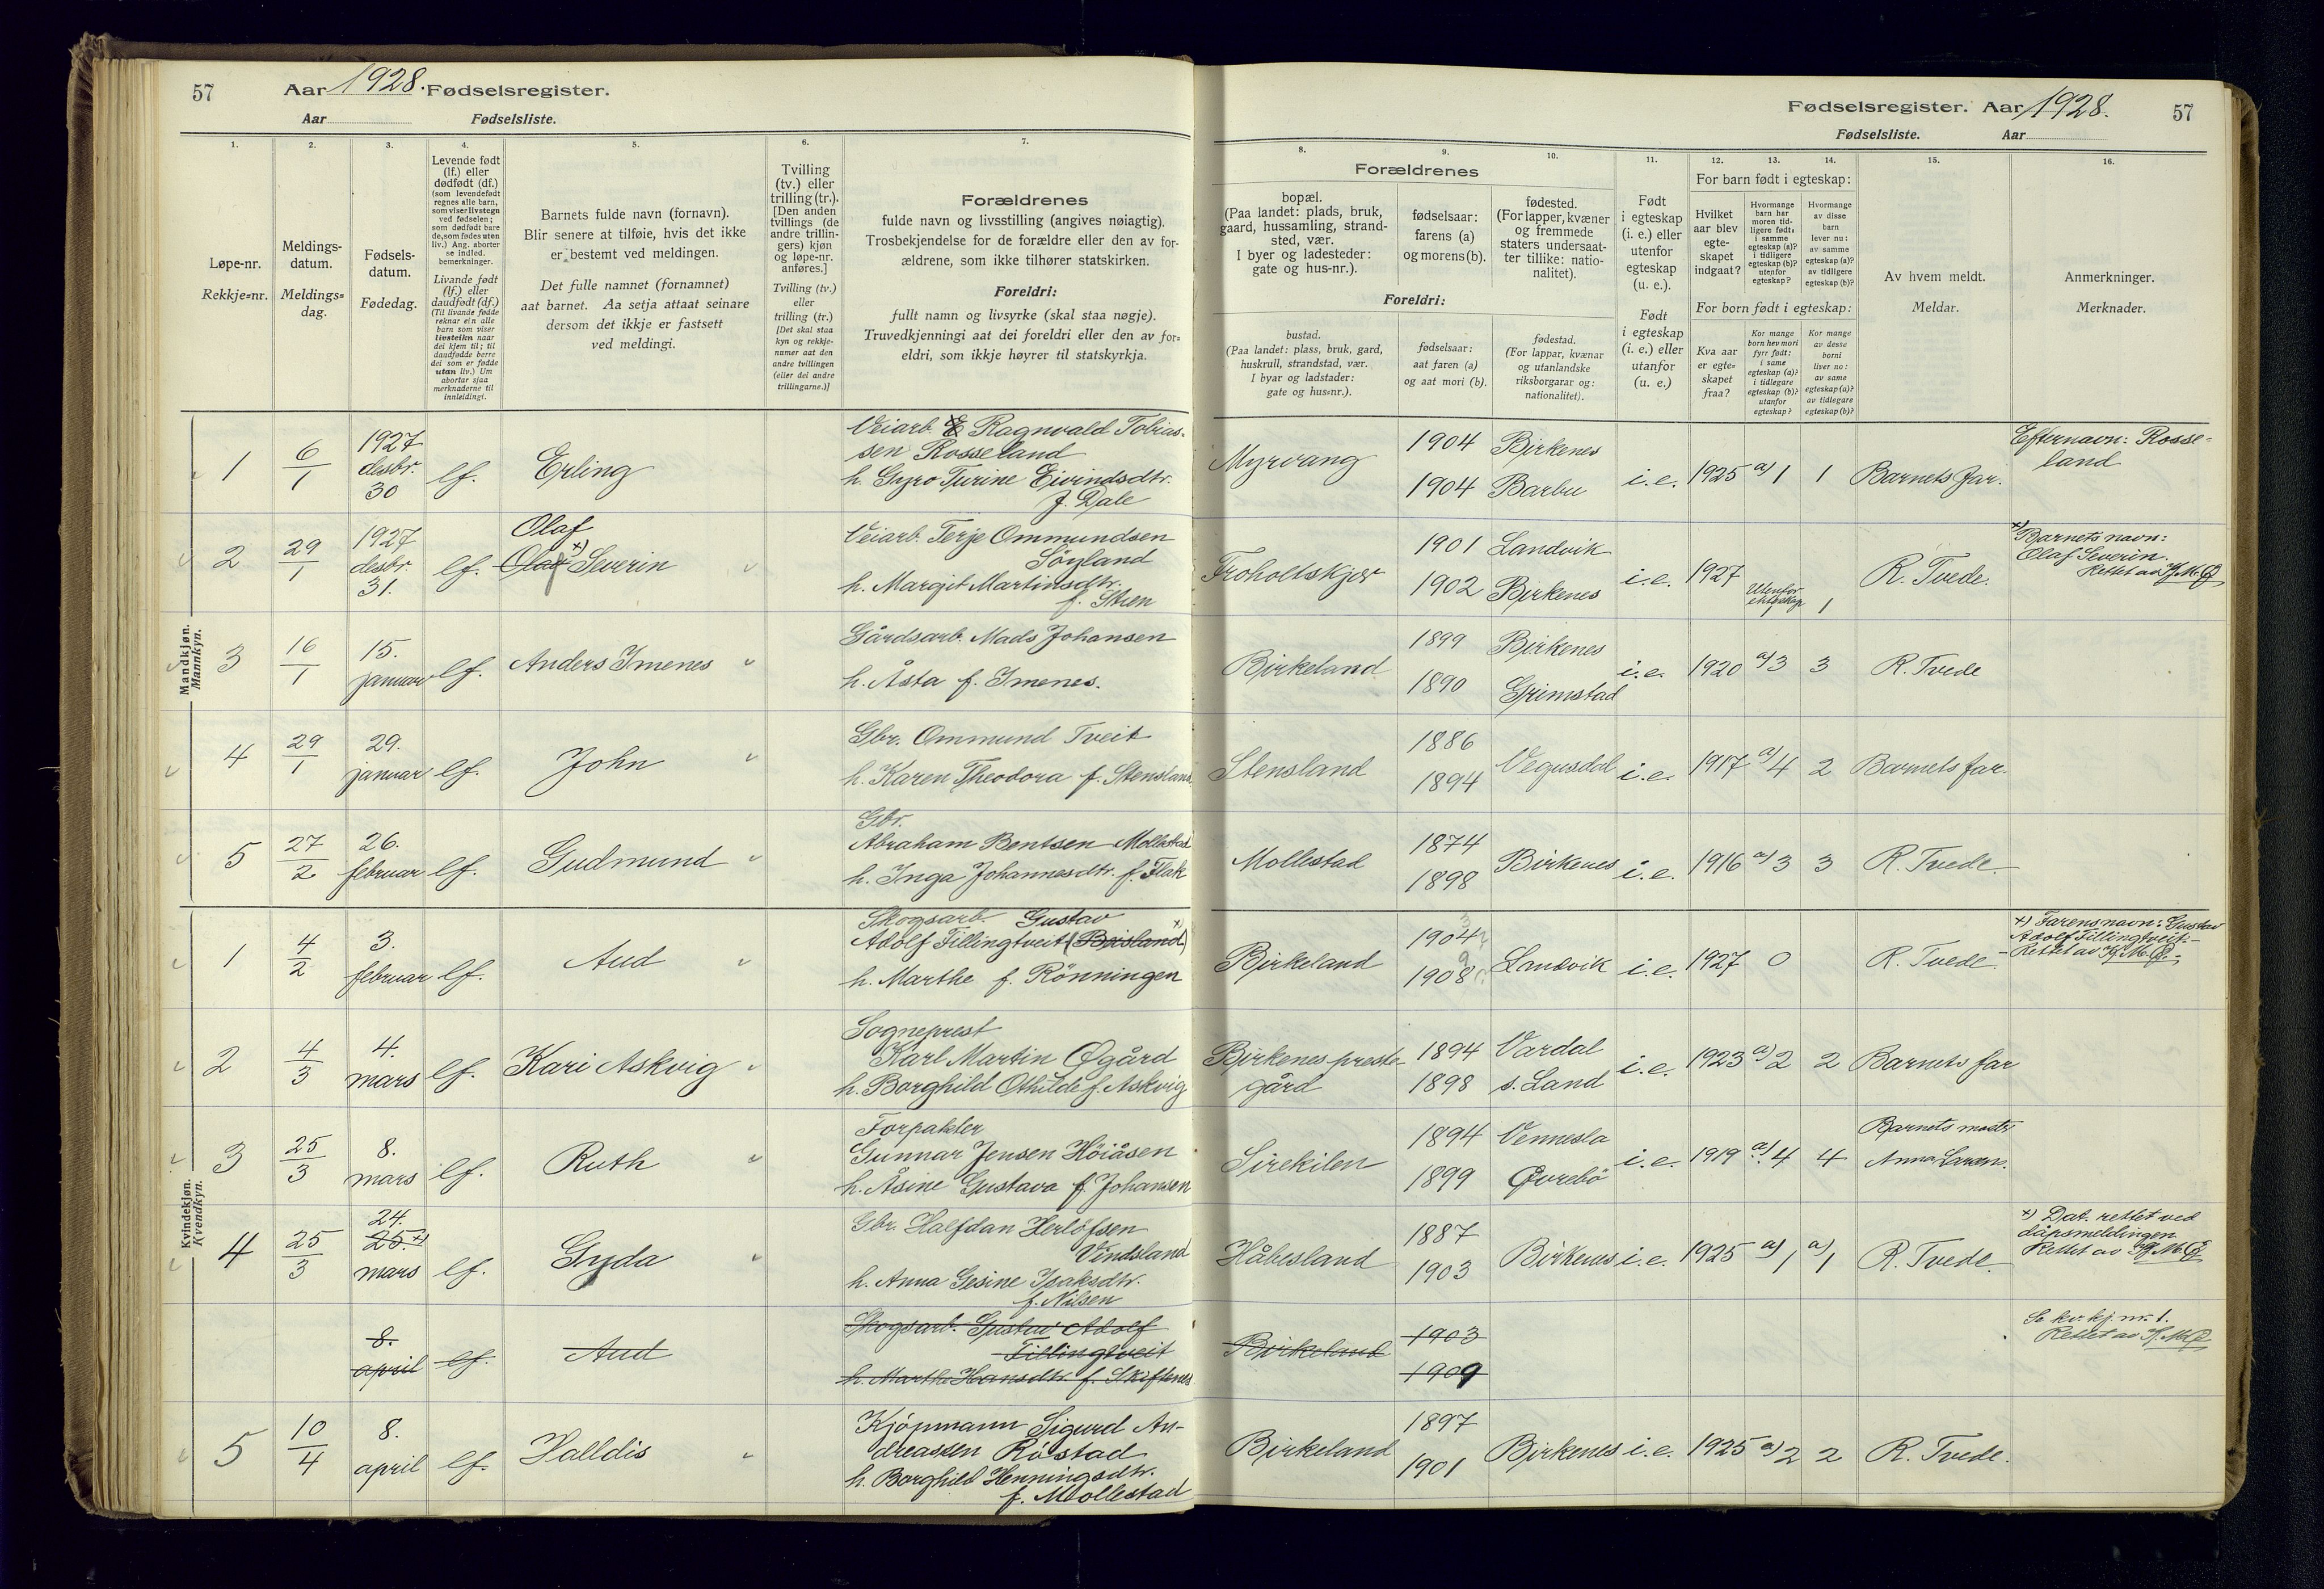 57 Aar 1928. Fødselsregister.
Aar Fødselsliste.
Fødselsregister. Aar 1928. 57
Fødselsliste. Aar
1. 2. 3. 4. 5. 6. 7.
Løpe-nr.
Rekkje=nr.
Meldings-
datum.
Meldings=
dag.
Fødsels-
datum.
Fødedag.
Levende født
(lf.) eller
dødfødt (df.)
(som levendefødt
regnes alle barn,
som viser livstegn
ved fødselen;
som dødfødt bare
de, som fødes uten
liv.) Ang. aborter
se indled.
bemerkninger.
Livande født
(lf.) eller
daudfødt (df.)
(Til livande fødde
reknar ein alle
born som viser
livsteikn naar
dei kjem til; til
daudfødde berre
dei som er fødde
utan liv.) Um
abortar sjaa
merknaderne til
innleidingi.
Barnets fulde navn (fornavn).
Blir senere at tilføie, hvis det ikke
er bestemt ved meldingen.
Det fulle namnet (fornamnet)
aat barnet. Aa setja attaat seinare
dersom det ikkje er fastsett
ved meldingi.
Tvilling
(tv.) eller
trilling (tr.).
[Den anden
tvillings (de
andre trillin-
gers) kjøn
og løpe-nr.
anføres.]
Tvilling (tv.)
eller
trilling (tr.)
[Det skal staa
kyn og rekkje-
numer aat den
andre tvillingen
(eller dei andre
trillingarne.)]
Forældrenes
fulde navn og livsstilling (angives nøiagtig).
Trosbekjendelse for de forældre eller den av for-
ældrene, som ikke tilhører statskirken.
Foreldri:
fullt namn og livsyrke (skal staa nøgje).
Truvedkjenningi aat dei foreldri eller den av for=
eldri, som ikkje høyrer til statskyrkja.
8. 9. 10. 11. 12. 13. 14. 15. 16.
Forældrenes
bopæl.
(Paa landet: plads, bruk,
gaard, hussamling, strand-
sted, vær.
I byer og ladesteder:
gate og hus-nr.).
fødselsaar:
farens (a)
og morens (b).
fødested.
(For lapper, kvæner
og fremmede
staters undersaat-
ter tillike: natio-
nalitet).
Foreldri:
bustad.
(Paa landet: plass, bruk, gard,
huskrull, strandstad, vær.
I byar og ladstader:
gate og hus=nr.).
fødselsaar:
aat faren (a)
og aat mori (b).
fødestad.
(For lappar, kvænar
og utanlandske
riksborgarar og:
nationalitet).
Født
i egteskap
(i. e.) eller
utenfor
egteskap
(u. e.).
Født
i egteskap
(i. e.) eller
utanfor
(u. e.)
For barn født i egteskap:
Hvilket
aar blev
egte-
skapet
indgaat?
Hvormange
barn har
moren tid-
ligere født:
i samme
egteskap (a)?
i tidligere
egteskap (b)?
utenfor
egteskap?
Hvormange
av disse
barn
lever nu:
av samme
egteskap (a)?
av tidligere
egteskap (b)?
For born født i egteskap:
Kva aar
er egte=
skapet
fraa?
Kor mange
born hev mori
fyrr født:
i same
egteskap (a)?
i tidlegare
egteskap (b)?
utanfor
egteskap?
Kor mange
av desse
borni
liver no:
av same
egteskap (a)?
av tidlegare
egteskap (b)?
Av hvem meldt.
Meldar.
Anmerkninger.
Merknader.
Mandkjøn.
Mannkyn.
1 6/1 1927 desbr. 30 lf. Erling
Veiarb. Ragnvald Tobias-
sen Rosseland
h. Gyro Turine Eivindsdtr.
f. Dale
Myrvang 1904 Birkenes
1904 Barbu i.e. 1925 a) 1 1 Barnets far.
Efternavn: Rosse-
land
2 29/1 1927 desbr. 31. lf. Olaf
Olaf x) Severin
Veiarb. Terje Ommundsen
Söyland
h. Margit Martinsdtr.
f. Stien
Froholtskjær 1901 Landvik
1902 Birkenes i.e. 1927 Utenfor ekteskap 1 R. Tvede.
x) Barnets navn:
Olaf Severin.
Rettet av K.M.Ø
3 16/1 15. januar lf. Anders Imenes
Gårdsarb. Mads Johansen
h. Åsta f. Imenes.
Birkeland 1899 Birkenes
1890 Grimstad i.e. 1920 a) 3 3 R. Tvede
4 29/1 29. januar lf. John
Gbr. Ommund Tveit
h. Karen Theodora f. Stensland
Stensland 1886
1894 Vegusdal i.e. 1917 a) 4 2 Barnets far.
5 27/2 26. februar lf. Gudmund
Gbr.
Abraham Bentsen Mollestad
h. Inga Johannesdtr. f. Flak
Mollestad 1874
1898 Birkenes i.e. 1916 a) 3 3 R. Tvede.
Kvindekjøn.
Kvendkyn.
1 4/2 3. februar lf. Aud
Skogsarb. Gustav
Adolf Tillingtveit (Brisland) x)
h. Marthe f. Rönningen
Birkeland 1904
1908 Landvik i.e. 1927 0 R. Tvede.
x) Farens navn: Gustav
Adolf Tillingtveit. -
- Rettet av K.M.Ø. -
2 4/3 4. mars lf. Kari Askvig
Sogneprest
Karl Martin Øgård
h. Borghild Othilde f. Askvig
Birkenes preste-
gård 1894 Vardal
1898 s. Land i.e. 1923 a) 2 2 Barnets far
3 25/3 8. mars lf. Ruth
Forpakter
Gunnar Jensen Höiåsen
h. Åsine Gustava f. Johansen
Sirekilen 1894 Vennesla
1899 Øvrebö i.e. 1919 a) 4 4 Barnets moster
Anna Larsen.
4 25/3 24. 25. x) mars lf. Gyda
Gbr. Halfdan Herlofsen
Vindsland
h. Anna Gesine Isaksdtr.
f. Nilsen
Håbesland 1887
1903 Birkenes i.e. 1925 a) 1 a) 1 R. Tvede.
x) Dat. rettet ved
dåpsmeldingen
Rettet av K.M.Ø
8. april lf. Aud
Skogsarb. Gustav Adolf
Tillingtveit
h. Marthe Hansdtr. f. Skiftenes
Birkeland 1903
1909
Se kv.kj. nr. 1.
Rettet av K.M.Ø
5 10/4 8. april lf. Halldis
Kjöpmann Sigurd An-
dreassen Röstad
h. Borghild Henningsdtr.
f. Mollestad
Birkeland 1897
1901 Birkenes i.e. 1925 a) 2 2 R. Tvede.